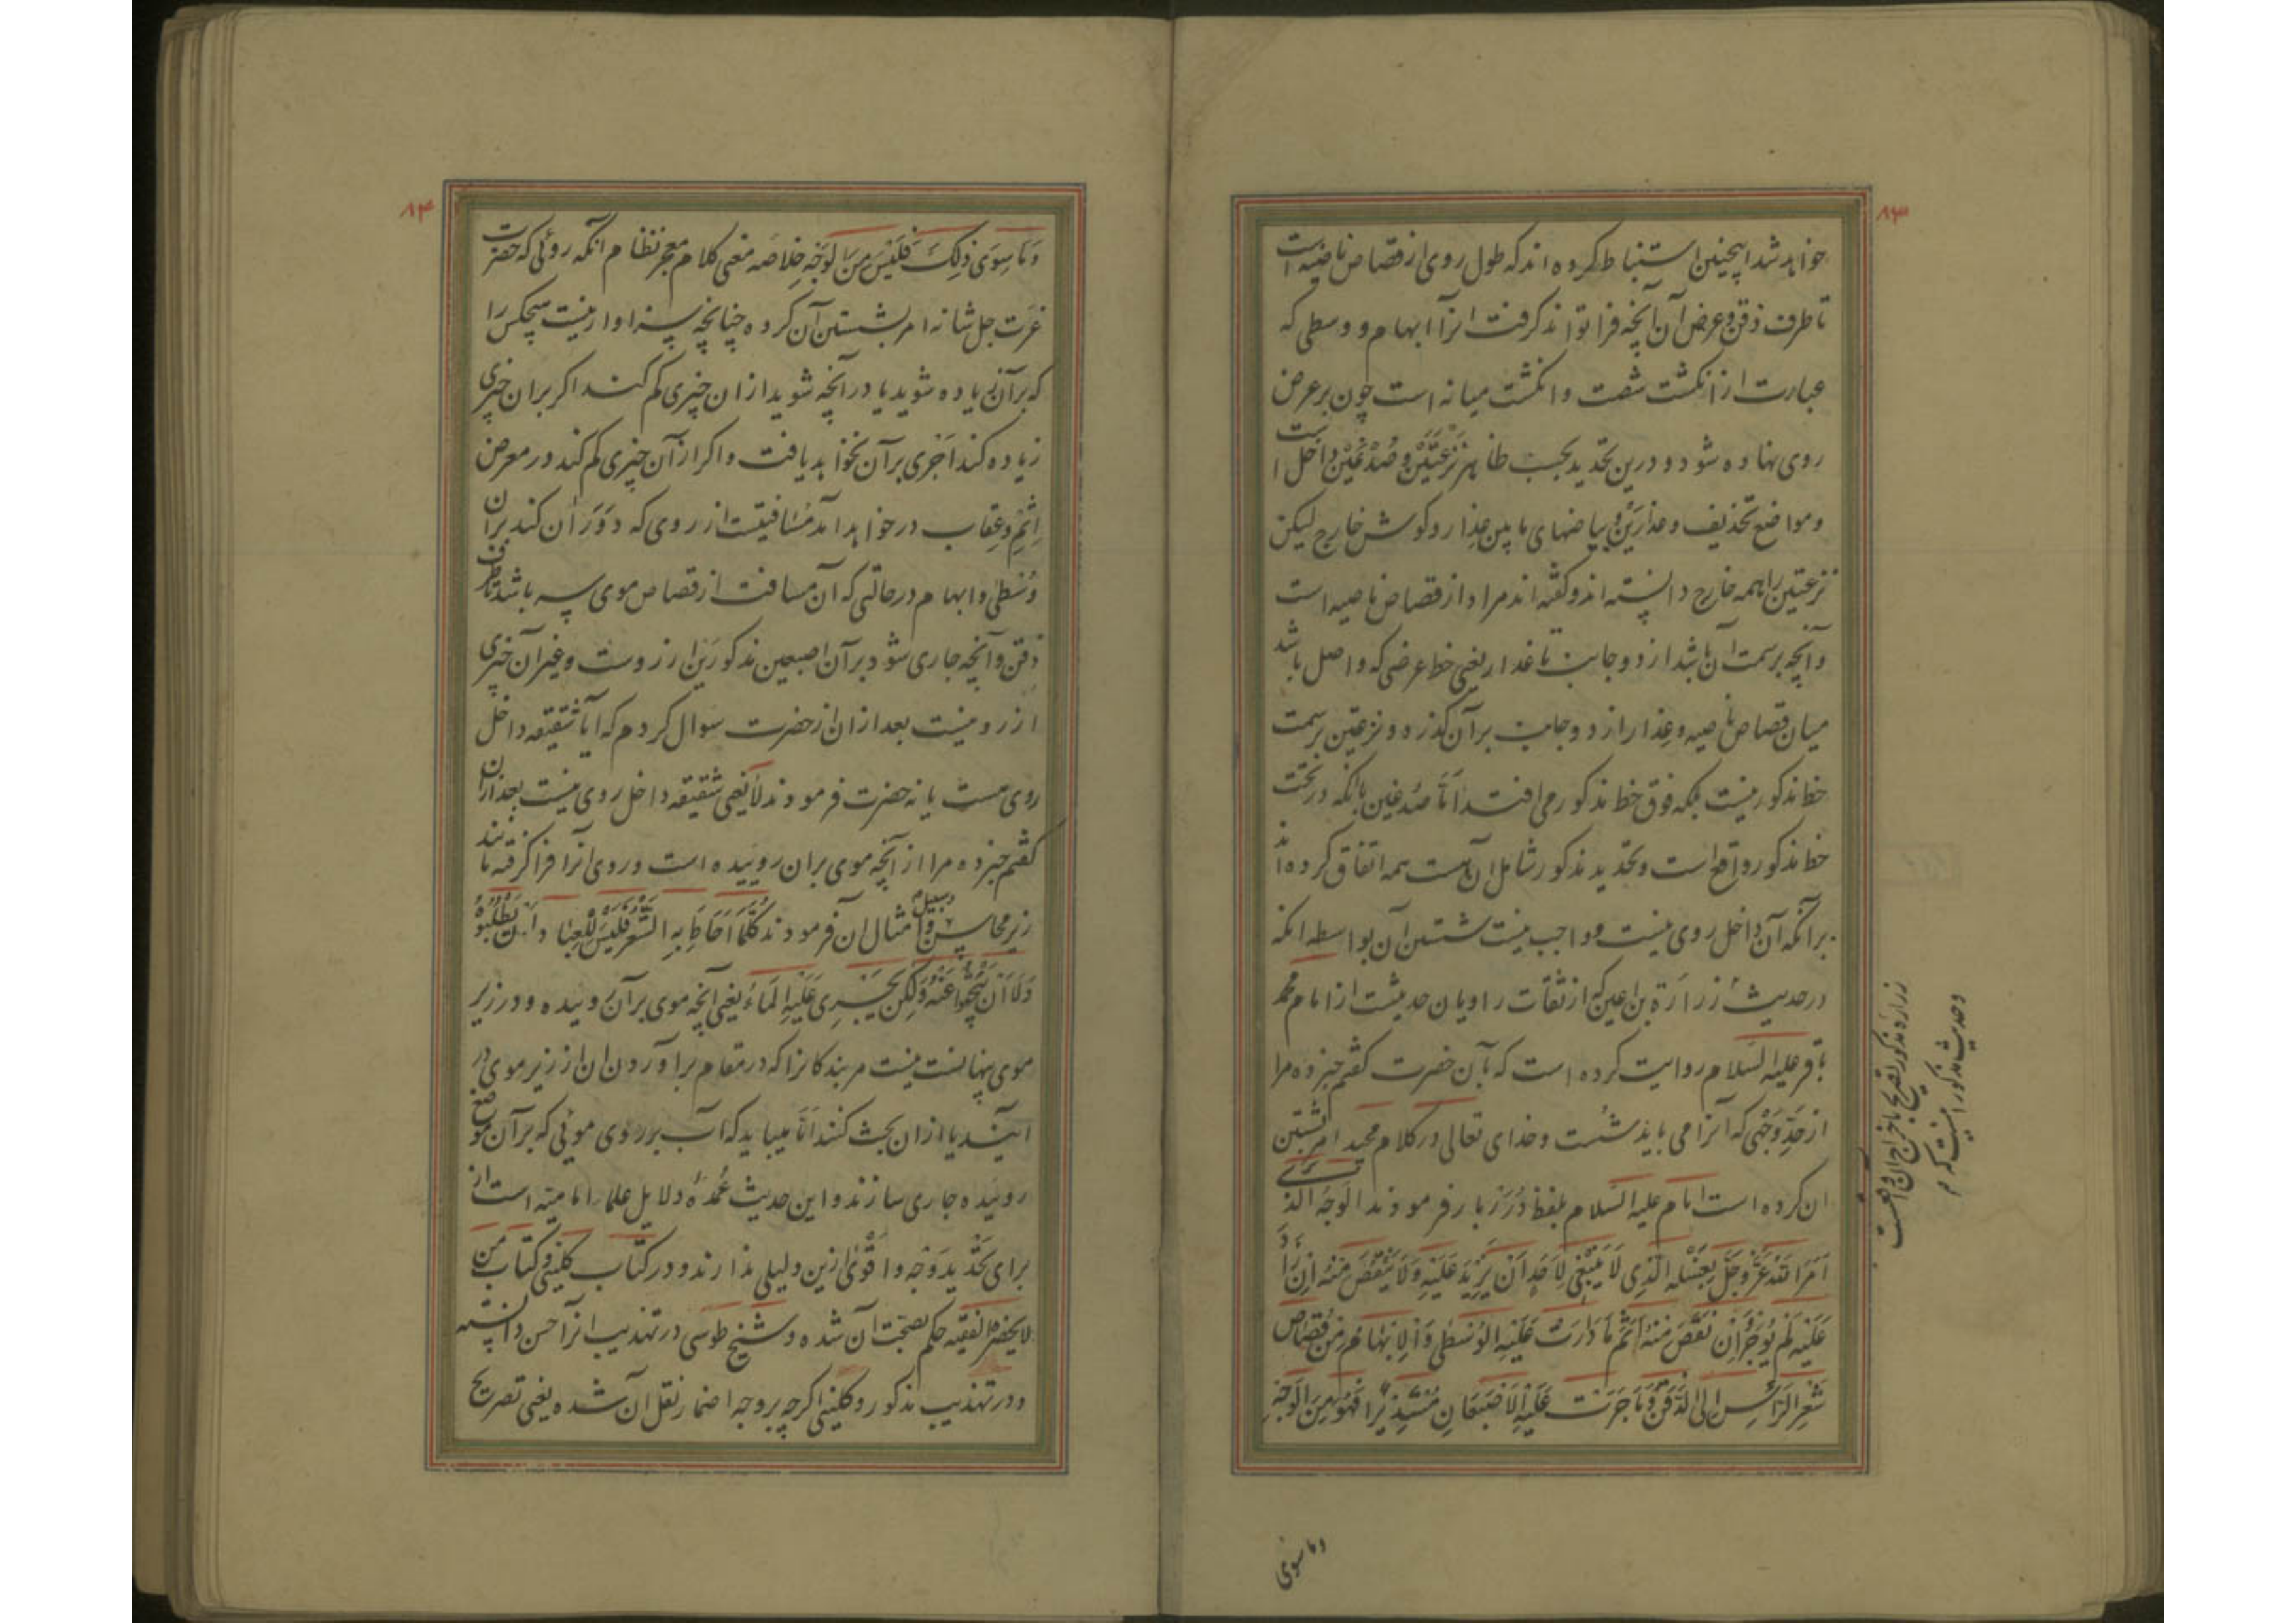 ۸۳
خواهد شد اینچنین استنباط کرده اند که طول روی از قصاص ناصیه است
تا طرف ذقن و عرض آن آنچه فرا تواند کرفت انرا ابهام و وسطی که
عبارت از انکشت شصت و انکشت میانه است چون بر عرض
روی نهاده شود و درین تحدید بحسب ظاهر نزعتین و صدغین داخل است
و مواضع تحذیف و عذارین و بیاضهای ما بین عذار و کوش خارج لیکن
نزعتین را همه خارج دانسته اند و کفته اند مراد از قصاص ناصیه است
و آنچه بر سمت آن باشد از دو جانب تا عذار یعنی خط عرضی که واصل باشد
میان قصاص ناصیه و عذار از دو جانب بر آن کذرد و نزعتین بر سمت
خط مذکور نیست بلکه فوق خط مذکور می افتد اَمّا صُدغین بآنکه در تحت
خط مذکور واقع است و تحدید مذکور شامل ان هست همه اتفاق کرده اند
برآنکه آن داخل روی نیست و واجب نیست شستن آن بواسطه انکه
در حدیث زرارة بن اعین که از ثقات راویان حدیثست از امام محمد
باقر علیه السلام روایت کرده است که بآن حضرت کفتم خبر ده مرا
از حَدِّ وَجْهی که آنرا می باید شست و خدای تعالی در کلام مجید امر بشستن
ان کرده است امام علیه السّلام بلفظ دُرَرْ بار فرمودند الوَجْهُ الَّذی
اَمَرَ اللهُ عَزَّ وَجَلَّ بِغَسْلِهِ الَّذِی لَا یَنْبَغِی لِاَحَدٍ اَنْ یَزِیدَ عَلَیْهِ وَلَا یَنْقُصَ مِنْهُ اِنْ زَادَ
عَلَیْهِ لَمْ یُوجَرْ وَاِنْ نَقَصَ مِنْهُ اَثِمَ مَا دَارَتْ عَلَیْهِ الْوُسْطٰی وَالْاِبْهَامُ مِنْ قُصَاصِ
شَعْرِ الرَّاْسِ اِلَی الذَّقَنِ وَمَا جَرَتْ عَلَیْهِ الْاِصْبَعَانِ مُسْتَدِیْرًا فَهُوَ مِنَ الْوَجْهِ
زراره مذکور تصریح باخراج ان واقعست
وحدیث مذکور اینست که
وما سوی
۸۴
وَمَا سِوَی ذٰلِکَ فَلَیْسَ مِنَ الْوَجْهِ خلاصه معنی کلام معجز نظام انکه روئی که حضرت
عزت جل شانه امر بشستن آن کرده چنانچه سزاوار نیست هیچکس را
که بر آن زیاده شوید یا در آنچه شوید از ان چیزی کم کند اکر بر ان چیزی
زیاده کند اَجْری بر آن نخواهد یافت و اکر از آن چیزی کم کند در معرض
اِثْم و عِقاب در خواهد آمد مسافتیست از روی که دَوَرَان کند بر آن
وُسْطٰی و ابهام در حالتی که آن مسافت از قصاص موی سر باشد تا طرف
ذقن و آنچه جاری شود بر آن اصبعین مذکورین از روست و غیر آن چیزی
از رو نیست بعد از ان از حضرت سوال کردم که آیا شقیقه داخل
روی هست یا نه حضرت فرمودند لا یعنی شقیقه داخل روی نیست بعد از ان
کفتم خبر ده مرا از آنچه موی بر ان روییده است و روی انرا فرا کرفته مانند
زیر محاسن و سبیل و امثال ان فرمودند کُلَّمَا اَحَاطَ بِهِ الشَّعْرُ فَلَیْسَ لِلْعِبَادِ اَنْ یَطْلُبُوهُ
وَلَا اَنْ یَبْحَثُوا عَنْهُ وَلٰکِنْ یُجْرِی عَلَیْهِ الْمَاءُ یعنی آنچه موی بر آن روییده و در زیر
موی پنهانست نیست مر بندکانرا که در مقام برآوردن ان از زیر موی در
آیند یا از ان بحث کنند اَمّا میباید که آب بر روی موئی که بر آن موضع
روئیده جاری سازند و این حدیث عُمْدَهٔ دلایل علماء امامیه است از
برای تحْدِید وَجْه و اَقْوٰی ازین دلیلی ندارند و در کتاب کلینی و کتاب من
لا یحضره الفقیه حکم بصحت آن شده و شیخ طوسی در تهذیب انرا حسن دانسته
و در تهذیب مذکور و کلینی اکرچه بر وجه اضمار نقل آن شده یعنی تصریح